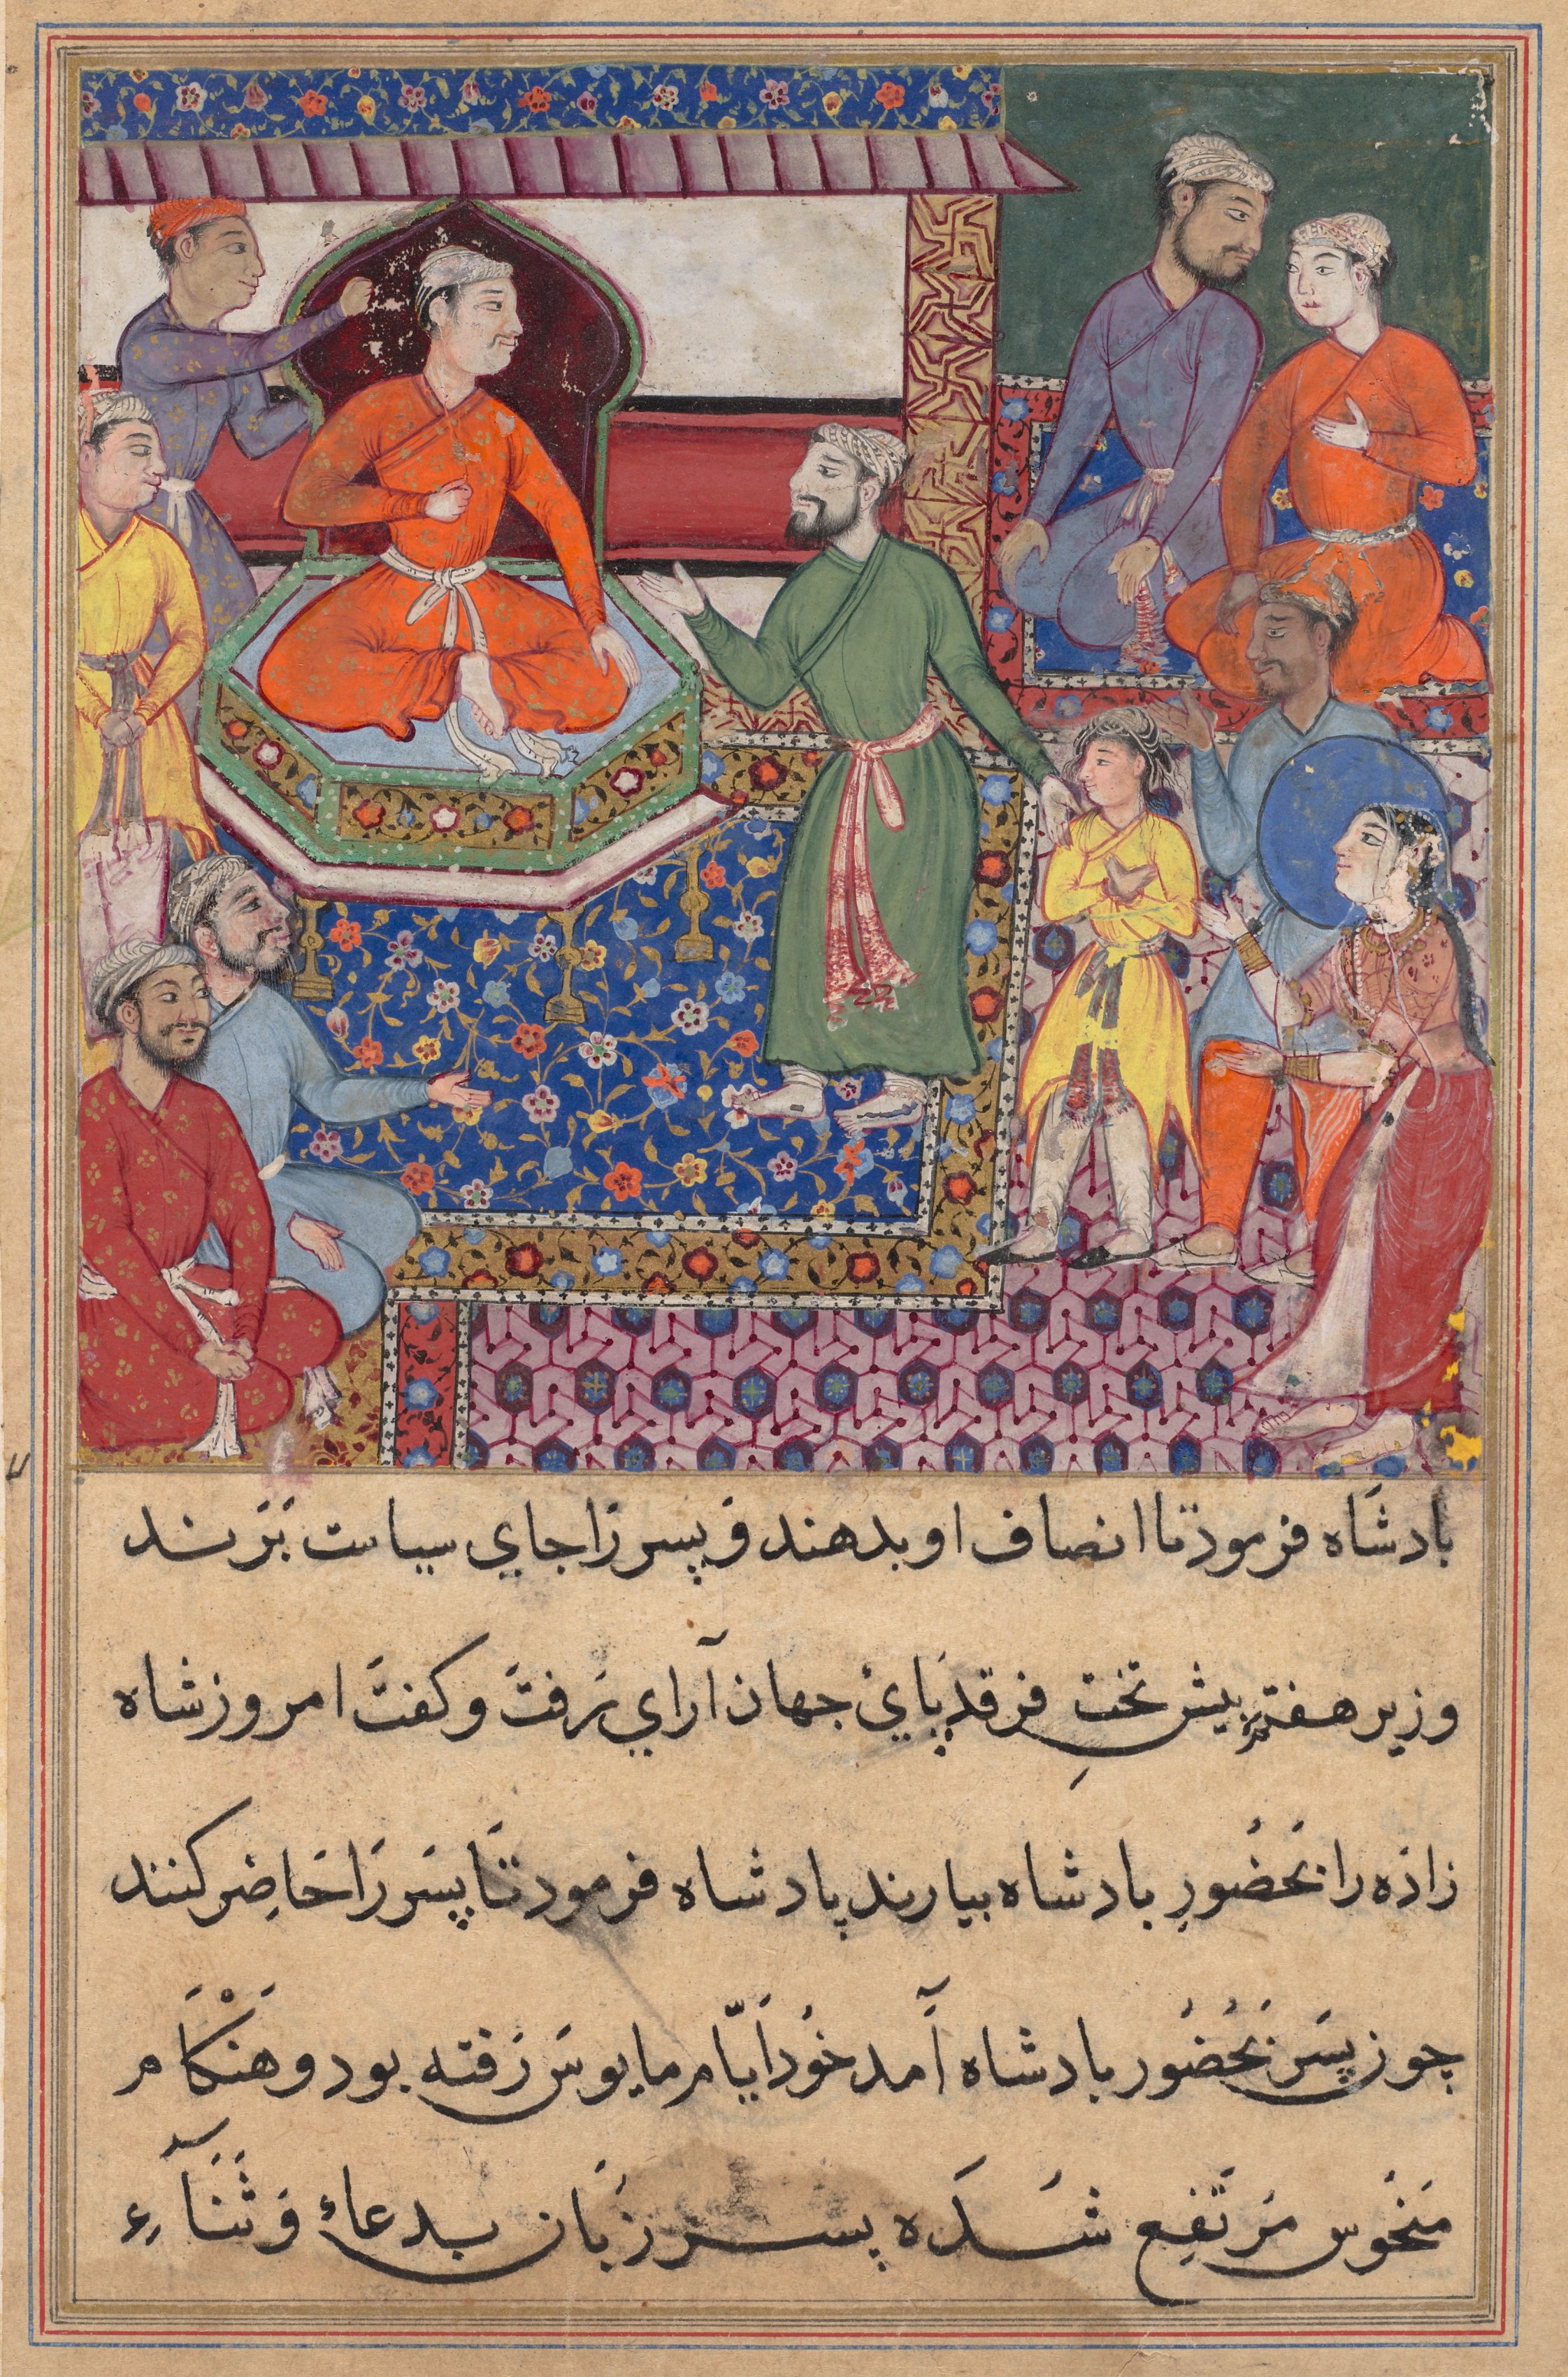 بادشَاه فرمود تا انصاف او بدهند وَ پسر رَا جاي سياست بَبَرند
وزير هفتم پيش تختِ فرقد پَايْ جهان آراي رَفتَ و كفتَ امروز شاه
زادَه را بَحضُورِ بادشاه بيارند پادشاه فرمود تَا پسَر رَا حَاضِر كنند
چون پسَر بَحُضُور بادشاه آمد خود اَيّام مايوسَ رَفته بود و هَنْكَام
مَنحُوس مُرتَفِع شُدَه پسر زبَان بدعاءْ وَ ثَنَآءِ